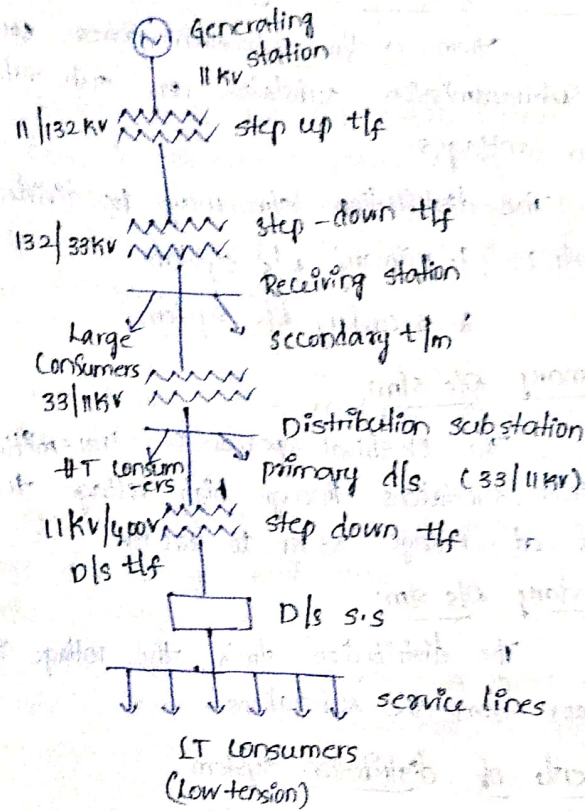 Generating
station
11 KV
11/132 KV step up t/f
step-down t/f
132/33KV
Receiving station
Large
Consumers
secondary t/m
33/11KV
Distribution substation
HT Consum
-ers
primary d/s (33/11KV)
11KV/400V step down t/f
D/s t/f
D/s s.s
service lines
LT Consumers
(Low tension)